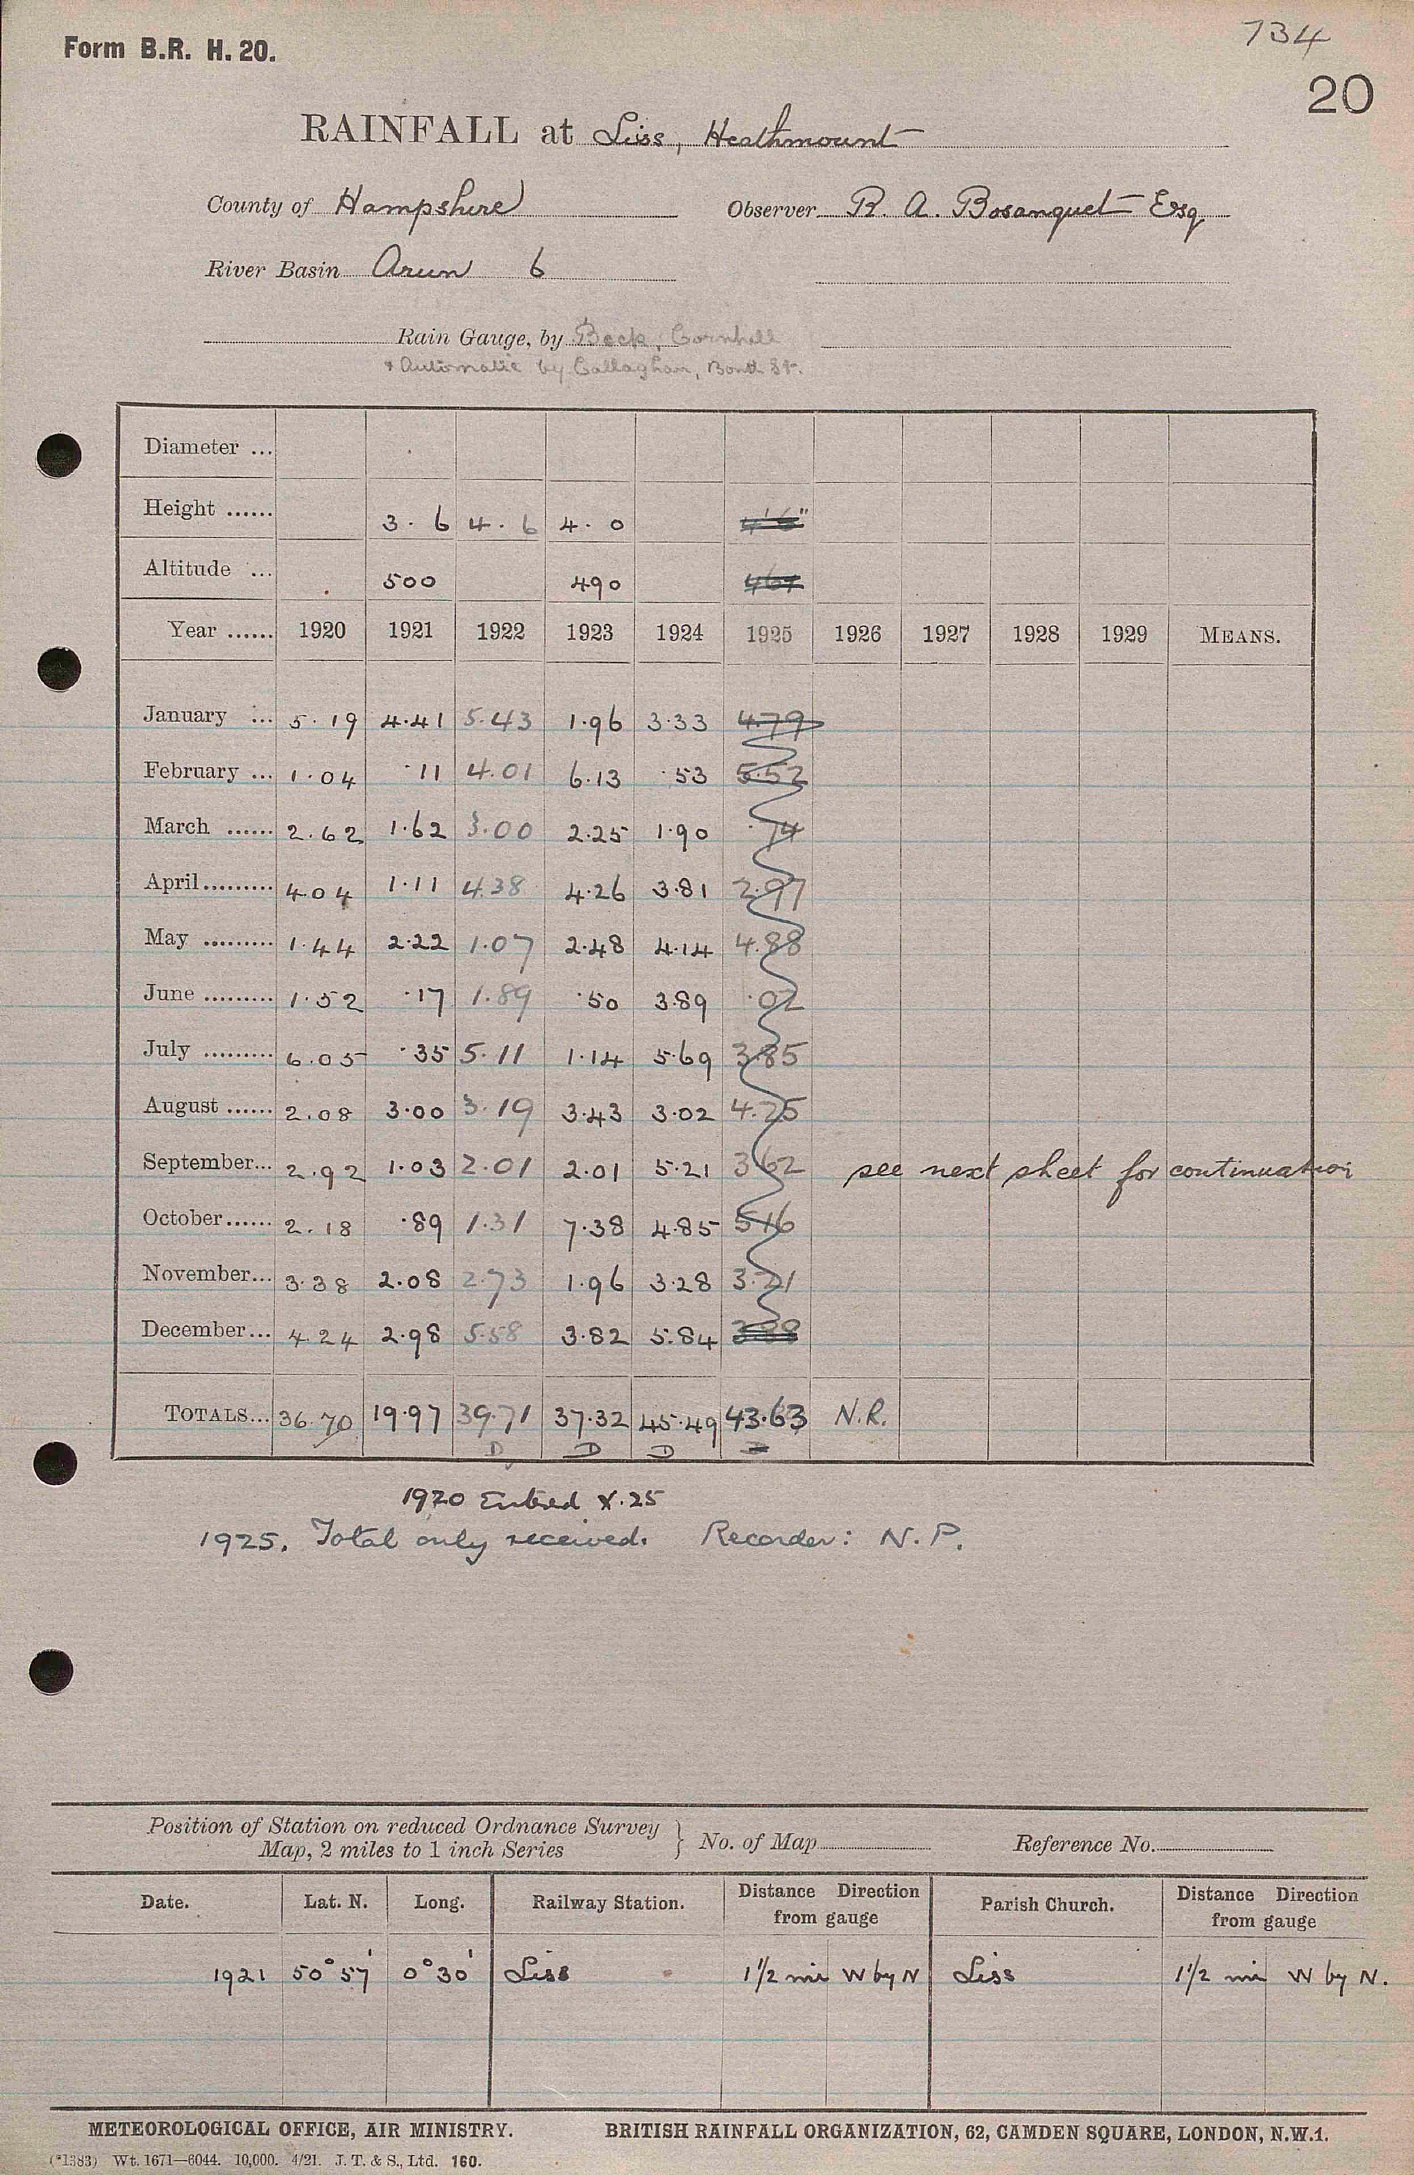 734
Form B.R. H. 20.
20
RAINFALL at Liss, Heathmount
County of Hampshire Observer R. A. Bosanquet Esq
River Basin Arun 6
Rain Gauge, by Beck, Cornhill
& Automatic by Callaghan, Bond St.
Diameter ...
Height ...... 3. 6 4. 6 4. 0 4' 6"
Altitude ... 500 490 467
Year ...... 1920 1921 1922 1923 1924 1925 1926 1927 1928 1929 MEANS.
January ... 5.19 4.41 5.43 1.96 3.33 4.79
February ... 1.04 .11 4.01 6.13 .53 5.52
March ...... 2.62 1.62 3.00 2.25 1.90 .74
April......... 4.04 1.11 4.38 4.26 3.81 2.97
May ......... 1.44 2.22 1.07 2.48 4.14 4.88
June ......... 1.52 .17 1.89 .50 3.89 .02
July ......... 6.05 .35 5.11 1.14 5.69 3.85
August ...... 2.08 3.00 3.19 3.43 3.02 4.25
September... 2.92 1.03 2.01 2.01 5.21 3.62 see next sheet for continuation
October...... 2.18 .89 1.31 7.38 4.85 5.16
November... 3.38 2.08 2.73 1.96 3.28 3.21
December... 4.24 2.98 5.58 3.82 5.84 3.88
TOTALS... 36.70 19.97 39.71 37.32 45.49 43.63 N.R.
D D D D
1920 Entred X.25
1925. Total only received. Recorder: N.P.
Position of Station on reduced Ordnance Survey
Map, 2 miles to 1 inch Series } No. of Map Reference No.
Date. Lat. N. Long. Railway Station. Distance Direction from gauge Parish Church. Distance Direction from gauge
1921 50° 57' 0° 30' Liss 1½ mi W by N Liss 1½ mi W by N.
METEOROLOGICAL OFFICE, AIR MINISTRY. BRITISH RAINFALL ORGANIZATION, 62, CAMDEN SQUARE, LONDON, N.W.1.
(*1383) Wt. 1671—6044. 10,000. 4/21. J. T. & S., Ltd. 160.